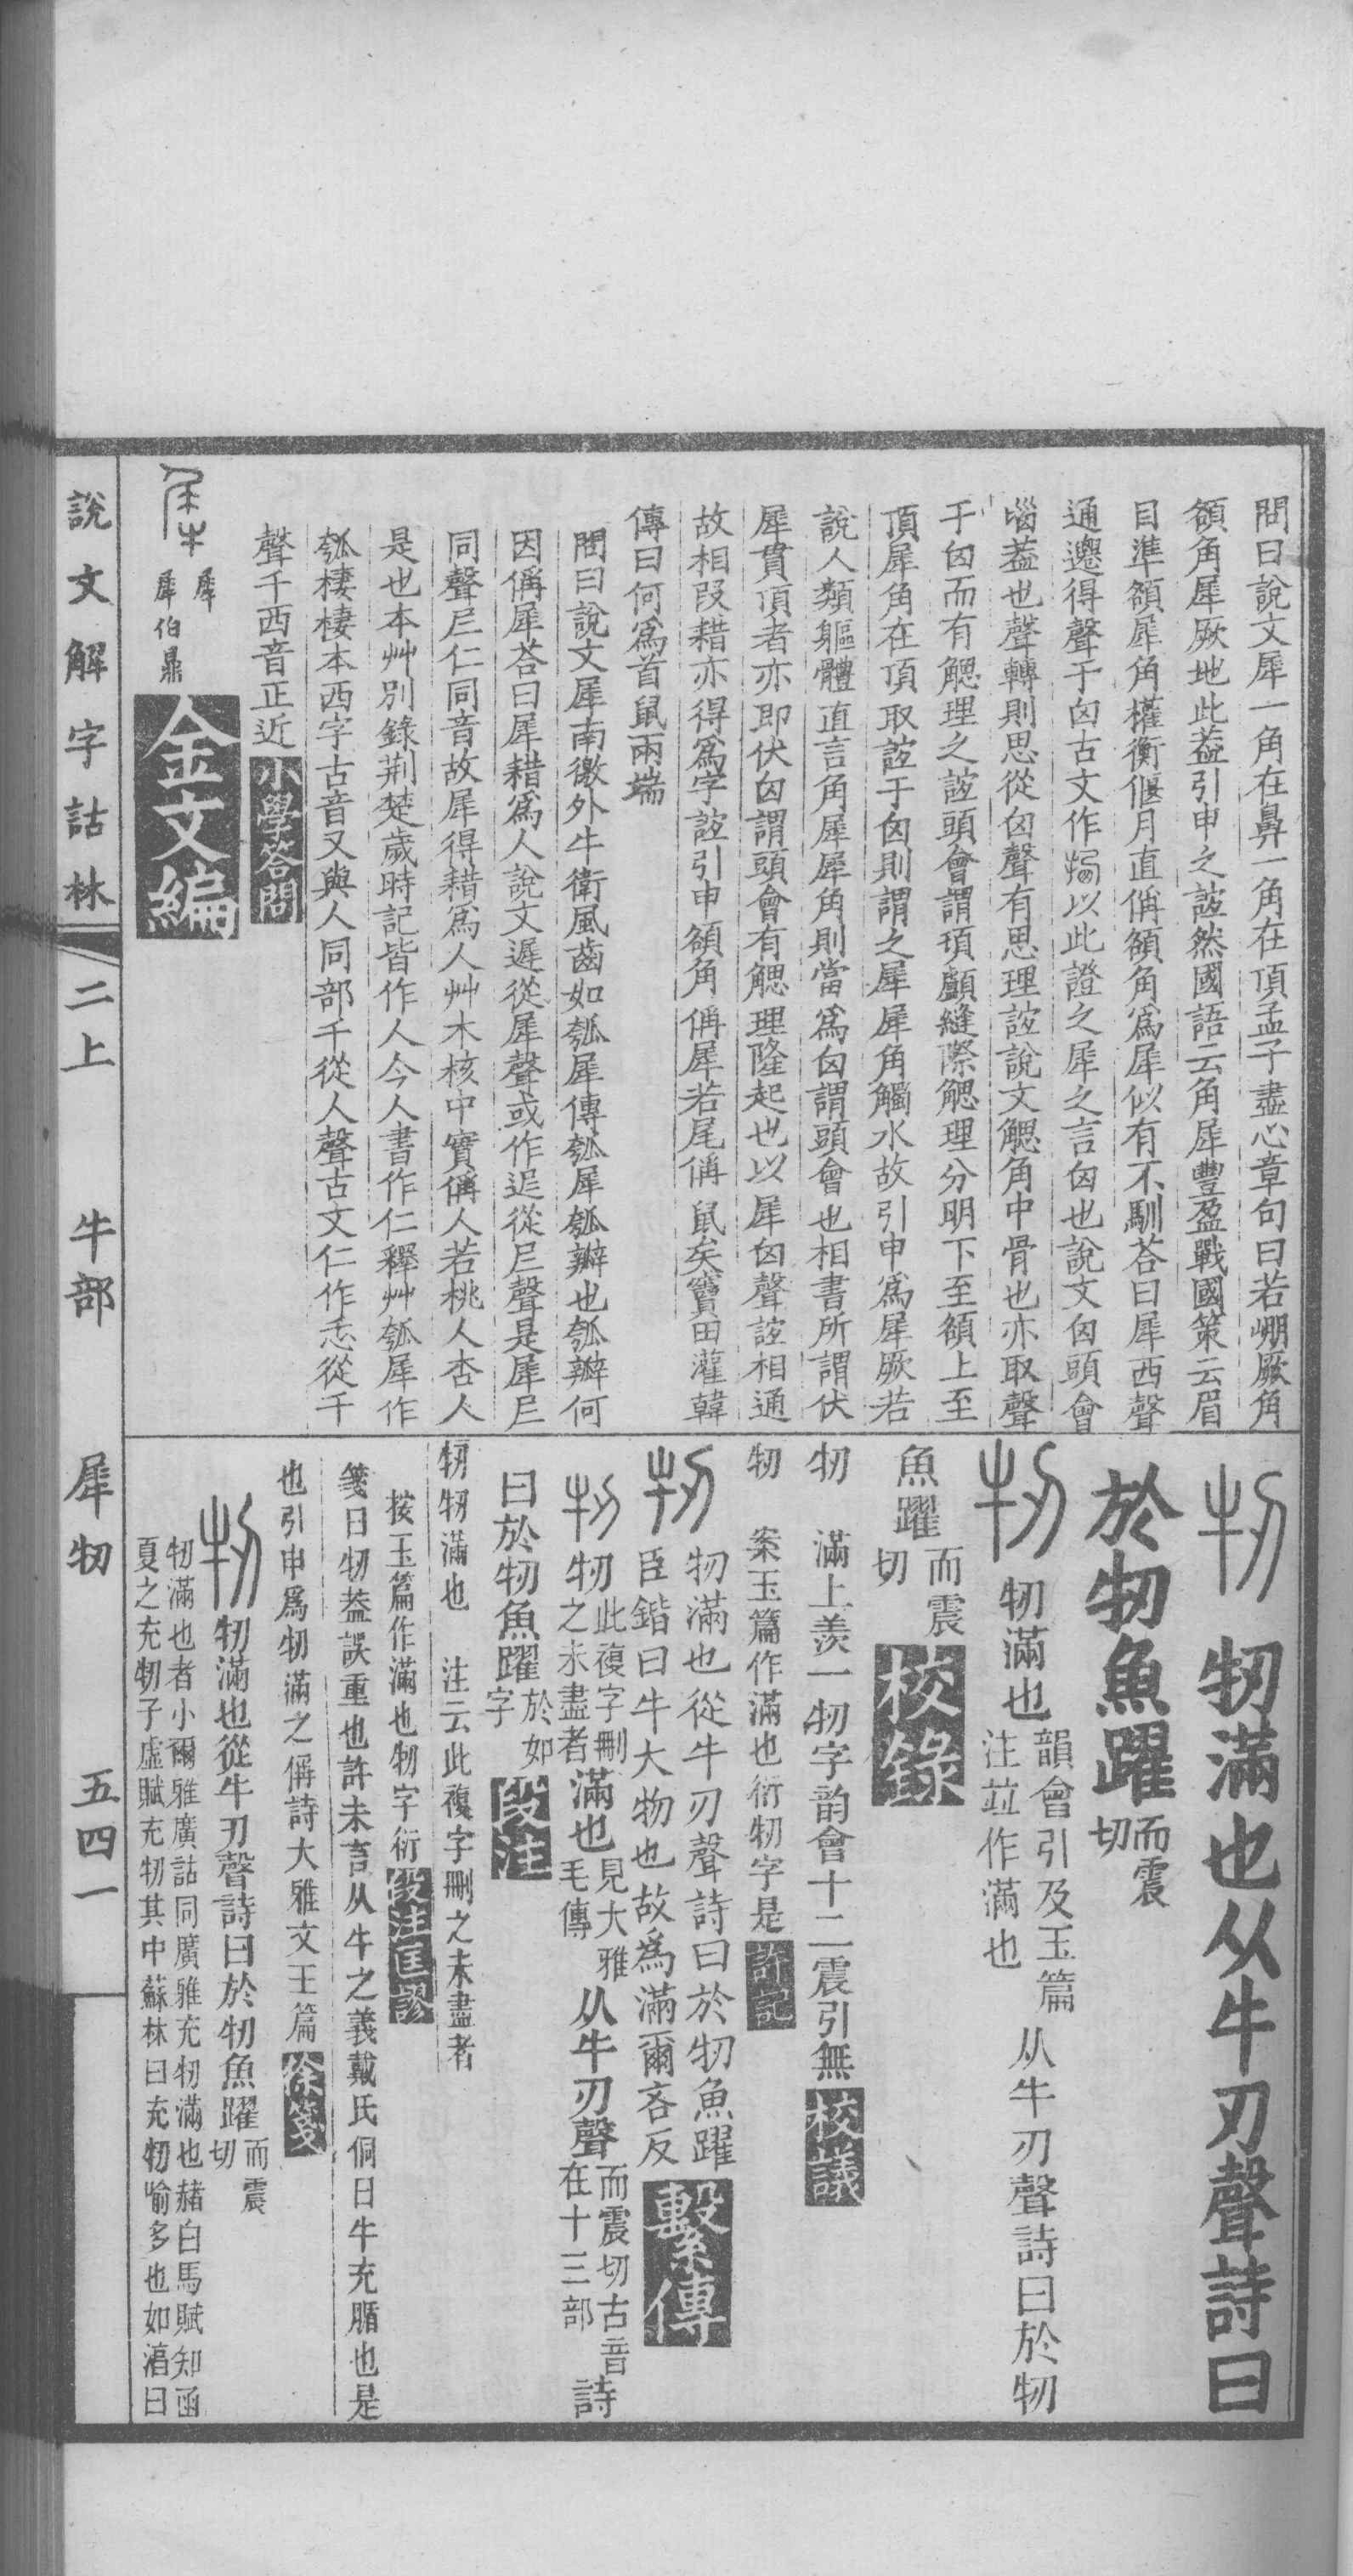 問曰說文犀一角在鼻一角在頂孟子盡心章句曰若崩厥角
頟角犀厥地此葢引申之誼然國語云角犀豐盈戰國策云眉
目準頟犀角權衡偃月直偁頟角爲犀似有不馴荅曰犀西聲
通𨘢得聲于囟古文作𢳎以此證之犀之言囟也說文囟頭會
𡿺葢也聲轉則思從囟聲有思理誼說文䚡角中骨也亦取聲
于囟而有䚡理之誼頭會謂頂顱縫際䚡理分明下至頟上至
頂犀角在頂取誼于囟則謂之犀犀角觸水故引申爲犀厥若
說人類軀體直言角犀犀角則當爲囟謂頭會也相書所謂伏
犀貫頂者亦卽伏囟謂頭會有䚡理隆起也以犀囟聲誼相通
故相叚耤亦得爲字誼引申頟角偁犀若尾偁鼠矣竇田灌韓
傳曰何爲首鼠兩端
問曰說文犀南徼外牛衛風齒如瓠犀傳瓠犀瓠瓣也瓠瓣何
因偁犀荅曰犀耤爲人說文遲從犀聲或作𨒈從𡰥聲是犀𡰥
同聲𡰥仁同音故犀得耤爲人艸木核中實偁人若桃人杏人
是也本艸別錄荆楚歲時記皆作人今人書作仁釋艸瓠犀作
瓠棲棲本西字古音又與人同部千從人聲古文仁作忎從千
聲千西音正近小學答問
犀
犀伯鼎
金文編
牣滿也从牛刃聲詩曰
於牣魚躍而震切
牣滿也韻會引及玉篇注竝作滿也从牛刃聲詩曰於牣
魚躍而震切校錄
牣 滿上羨一牣字韵會十二震引無校議
牣 案玉篇作滿也衍牣字是許記
牣滿也從牛刃聲詩曰於牣魚躍
臣鍇曰牛大物也故爲滿爾吝反繫傳
牣牣此複字刪之未盡者滿也見大雅毛傳从牛刃聲而震切古音在十三部詩
曰於牣魚躍於如字段注
牣牣滿也 注云此複字刪之未盡者
按玉篇作滿也牣字衍段注匡謬
箋曰牣葢誤重也許未言从牛之義戴氏侗曰牛充腯也是
也引申爲牣滿之偁詩大雅文王篇徐箋
牣滿也從牛刃聲詩曰於牣魚躍而震切
牣滿也者小爾雅廣詁同廣雅充牣滿也赭白馬賦知函
夏之充牣子虛賦充牣其中蘇林曰充牣喻多也如湻曰
說文解字詁林 二上 牛部 犀牣 五四一